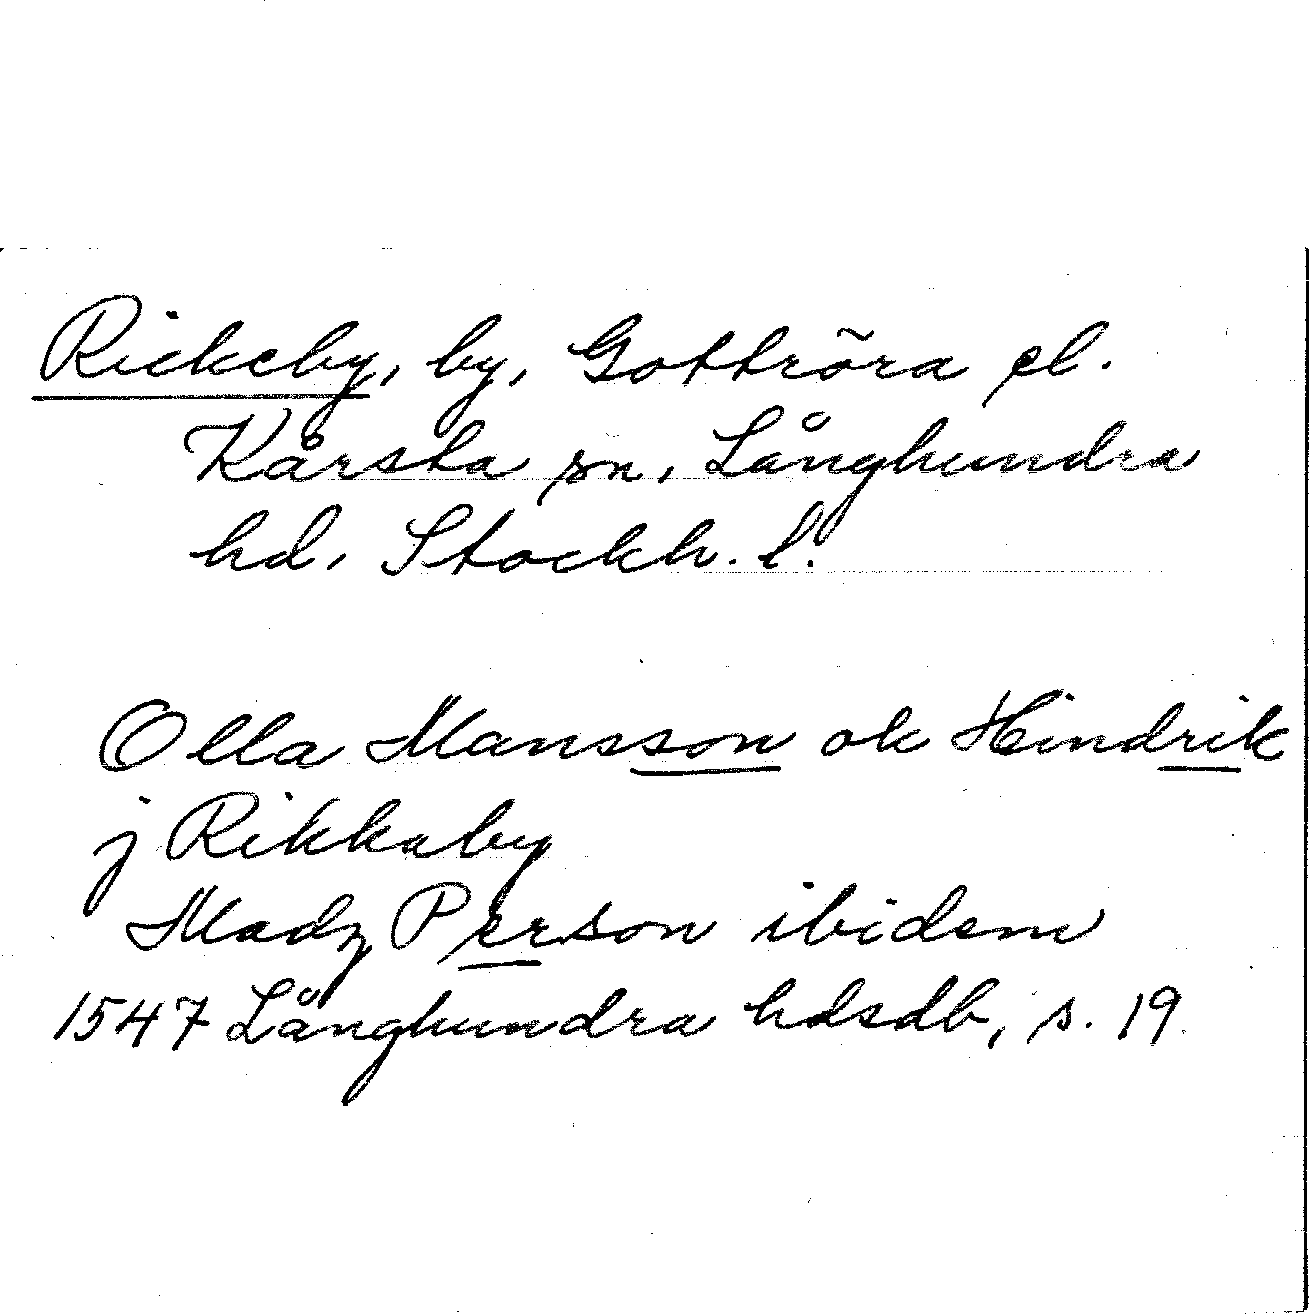 Rickeby, by, Gottröra el.
Kårsta sn, Långhundra
hd, Stockh. l.
Olla Mansson ok Hindrik
j Rikkaby
Madz Person ibidem
1547 Långhundra hdsdb, s. 19